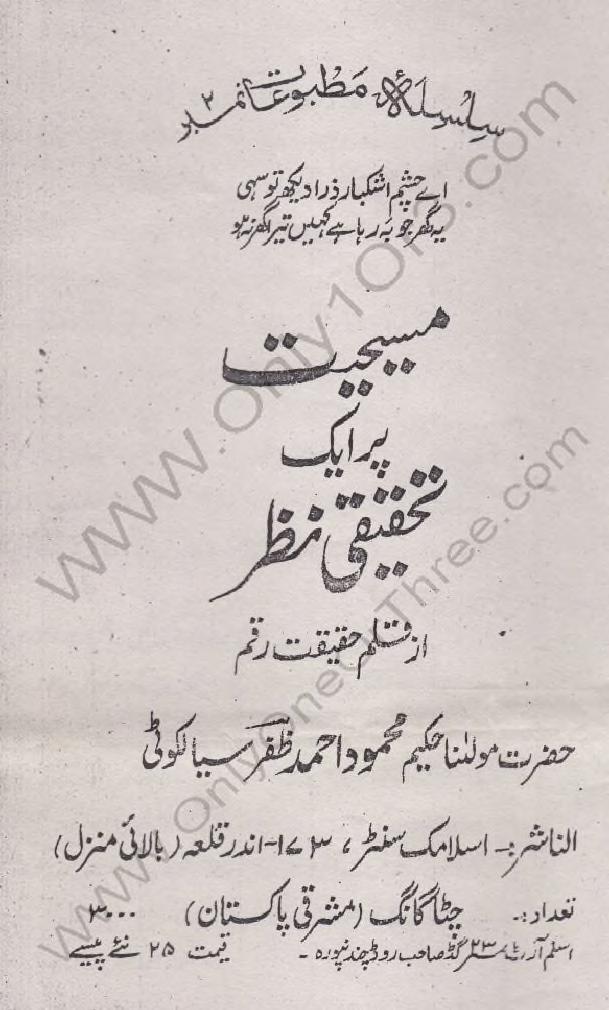 سلسلۂ مطبوعات نمبر ۲
اے چشم اشکبار ذرا دیکھ تو سہی
یہ گھر جو بہ رہا ہے کہیں تیرا گھر نہ ہو
مسیحیت
پر ایک
تحقیقی نظر
از قلم حقیقت رقم
حضرت مولٰنا حکیم محمود احمد ظفر سیالکوٹی
الناشر:- اسلامک سنٹر، ۱۷۳-اندر قلعہ (بالائی منزل)
تعداد:- چٹاگانگ (مشرقی پاکستان) ۳۰۰۰
اسلم آرٹ صاحب روڈ چندنپورہ - قیمت ۲۵ نئے پیسے
www.Only1Or3.com
www.OnlyOneOrThree.com